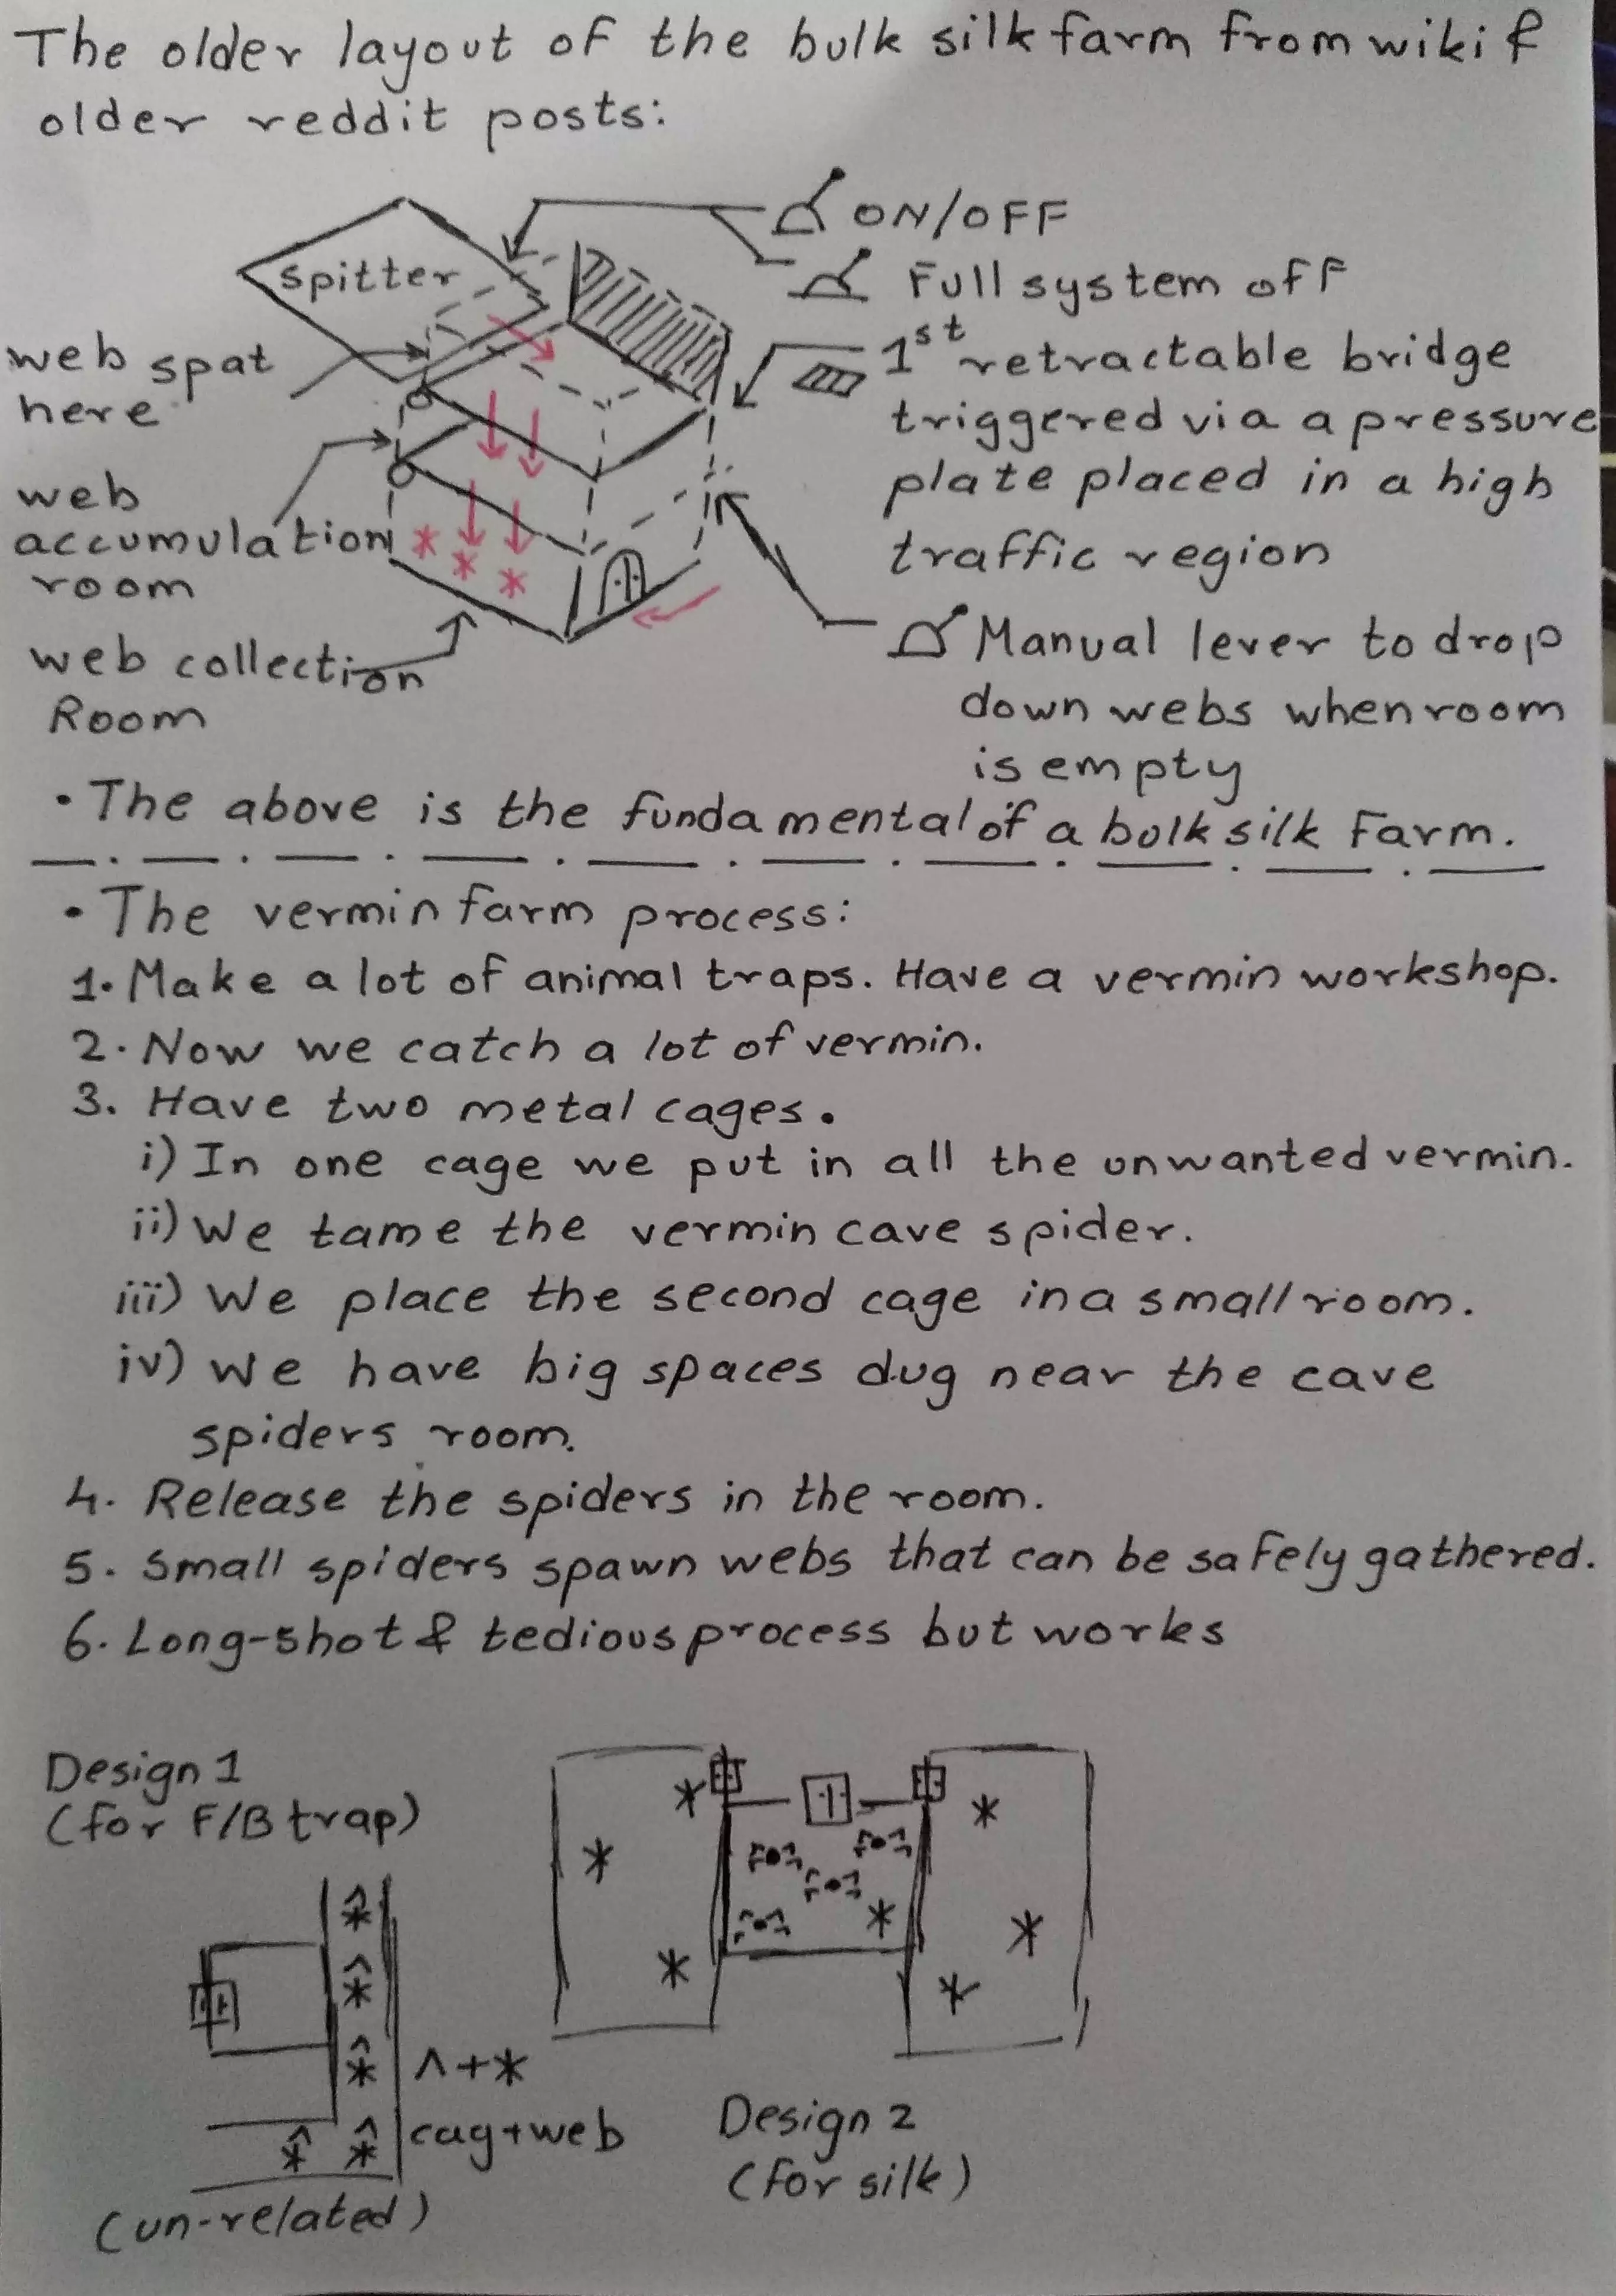 The older layout of the bulk silk farm from wiki &
older reddit posts:
ON/OFF
Spitter
Full system off
web spat
here
1st retractable bridge
triggered via a pressure
plate placed in a high
traffic region
web
accumulation
room
Manual lever to drop
down webs when room
is empty
web collection
Room
• The above is the fundamental of a bulk silk Farm.
• The vermin farm process:
1. Make a lot of animal traps. Have a vermin workshop.
2. Now we catch a lot of vermin.
3. Have two metal cages.
i) In one cage we put in all the unwanted vermin.
ii) We tame the vermin cave spider.
iii) We place the second cage in a small room.
iv) We have big spaces dug near the cave
spiders room.
4. Release the spiders in the room.
5. Small spiders spawn webs that can be safely gathered.
6. Long-shot & tedious process but works
Design 1
(for F/B trap)
^+*
cag+web
(un-related)
Design 2
(for silk)